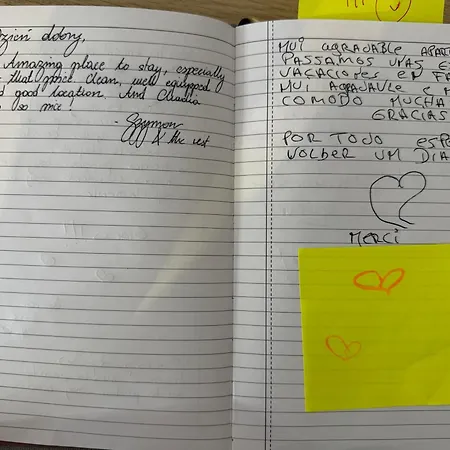 dzień dobry,
Amazing place to stay, especially
that price. Clean, well equipped
good location. And Claudia
so nice!
- Szymon
& the rest
MUI AGRADABLE
PASSAMOS UNAS
VACACIONES EN
MUI AGRADAVLE E
COMODO MUCHA
GRACIAS
POR TODO
VOLBER UM DIA
MERCI